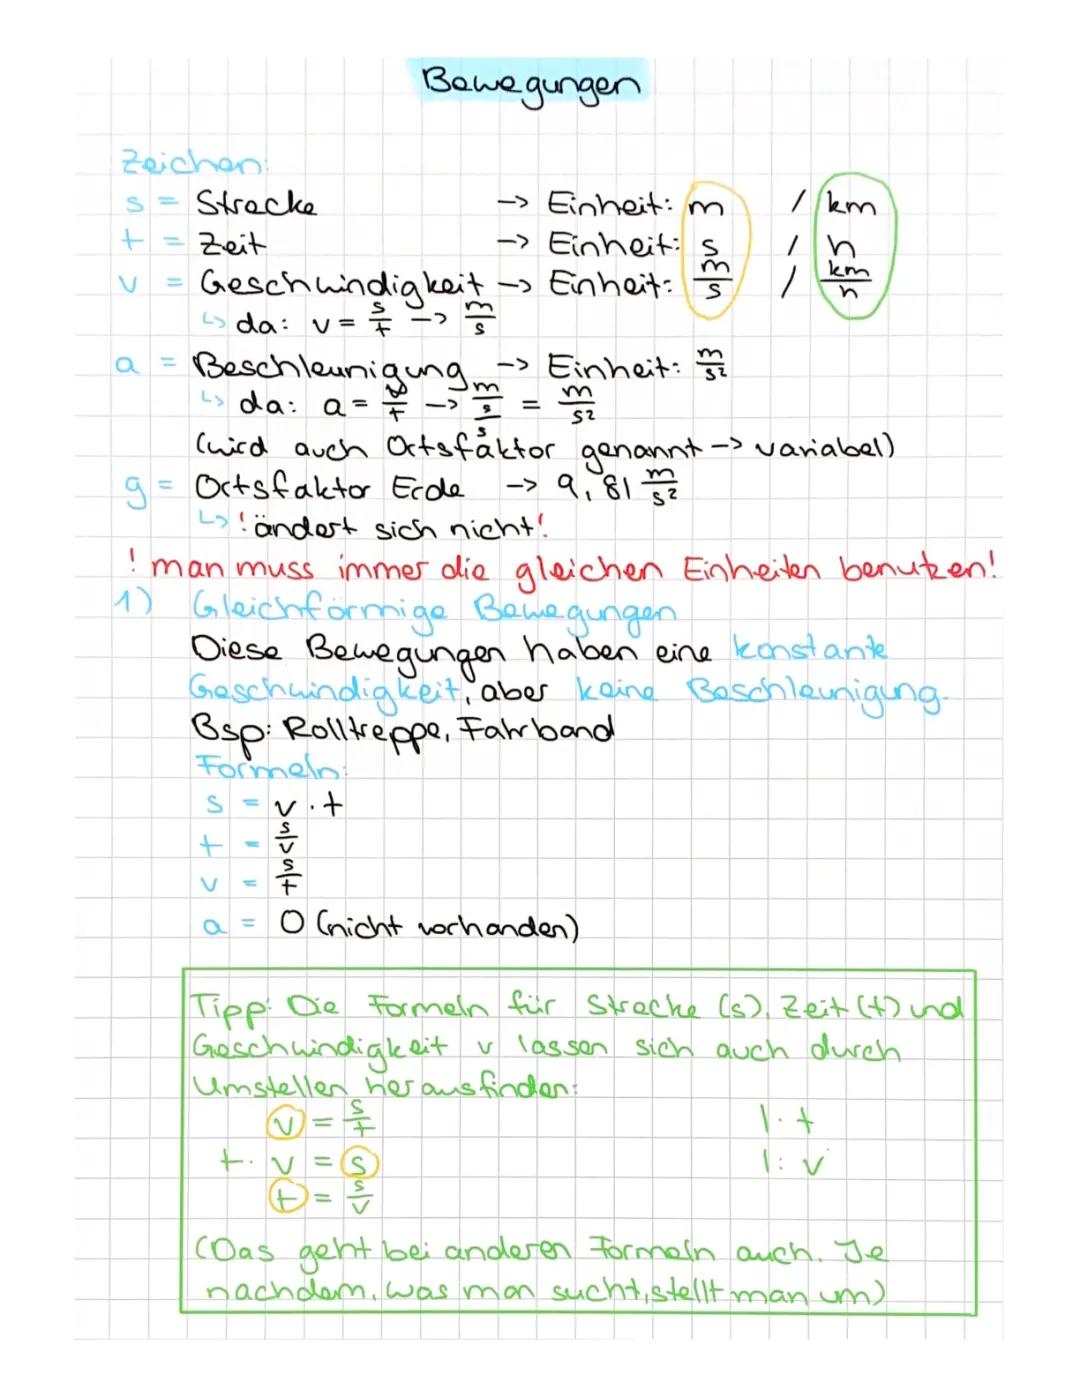 Bewegungen
Zeichen:
s = Strecke -> Einheit: m / km
t = Zeit -> Einheit: s / h
v = Geschwindigkeit -> Einheit: m/s / km/h
↳ da: v = s/t -> m/s
a = Beschleunigung -> Einheit: m/s²
↳ da: a = v/t -> m/s/s = m/s²
(wird auch Ortsfaktor genannt -> variabel)
g = Ortsfaktor Erde -> 9,81 m/s²
↳ ! ändert sich nicht!
! man muss immer die gleichen Einheiten benutzen!
1) Gleichförmige Bewegungen
Diese Bewegungen haben eine konstante
Geschwindigkeit, aber keine Beschleunigung.
Bsp: Rolltreppe, Fahrband
Formeln:
s = v · t
t = s/v
v = s/t
a = 0 (nicht vorhanden)
Tipp: Die Formeln für Strecke (s), Zeit (t) und
Geschwindigkeit v lassen sich auch durch
Umstellen herausfinden:
v = s/t |· t
t · v = s |: v
t = s/v
(Das geht bei anderen Formeln auch. Je
nachdem, was man sucht, stellt man um)